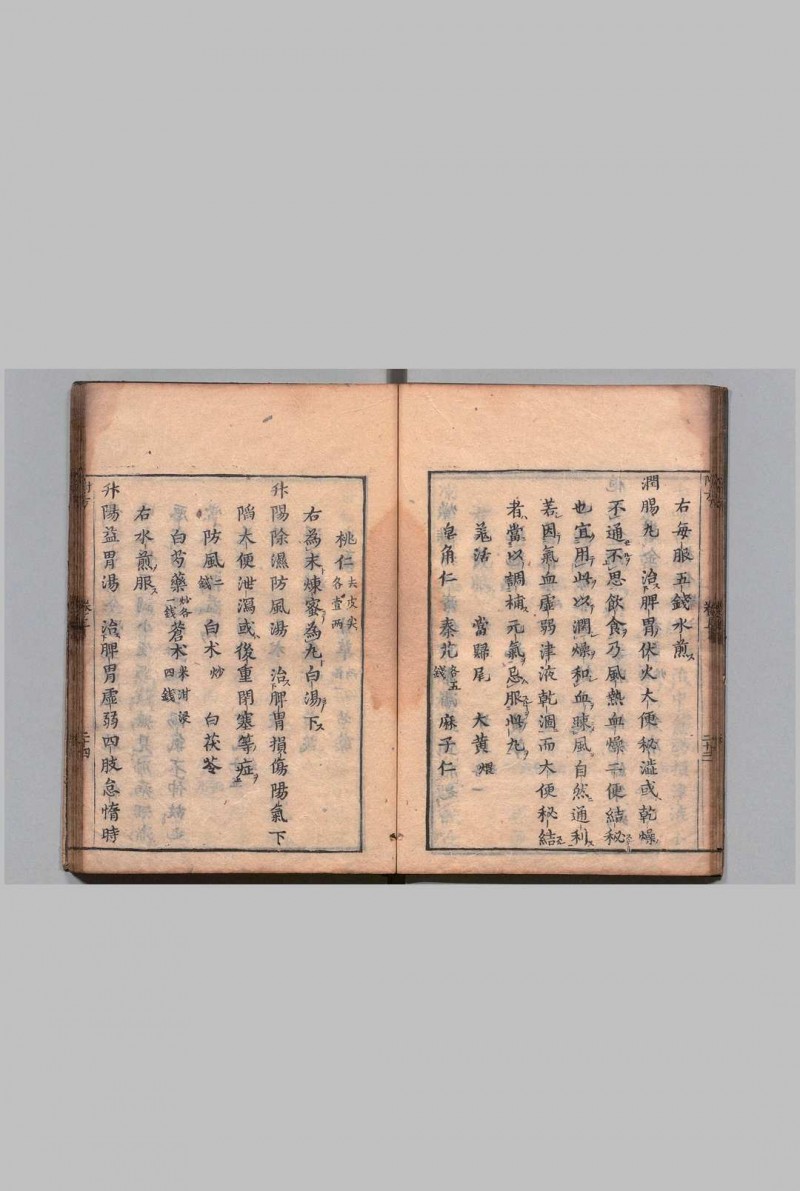 右每服五錢水煎
潤腸丸 治脾胃伏火大便秘澁或乾燥
不通不思飲食乃風熱血燥二便結秘
也宜用此以潤燥和血踈風自然通利
若因氣血虛弱津液乾涸而大便秘結
者當以調補元氣忌服此丸
羌活 當歸尾 大黃煨
皂角仁 秦艽各五錢 麻子仁
桃仁去皮尖各壹兩
右為末煉蜜為丸白湯下
升陽除濕防風湯 治脾胃損傷陽氣下
陷大便泄瀉或後重閉塞等症
防風二錢 白朮炒 白茯苓
白芍藥炒各一錢 蒼朮米泔浸四錢
右水煎服
升陽益胃湯 治脾胃虛弱四肢怠惰時
附方 卷之 二十四